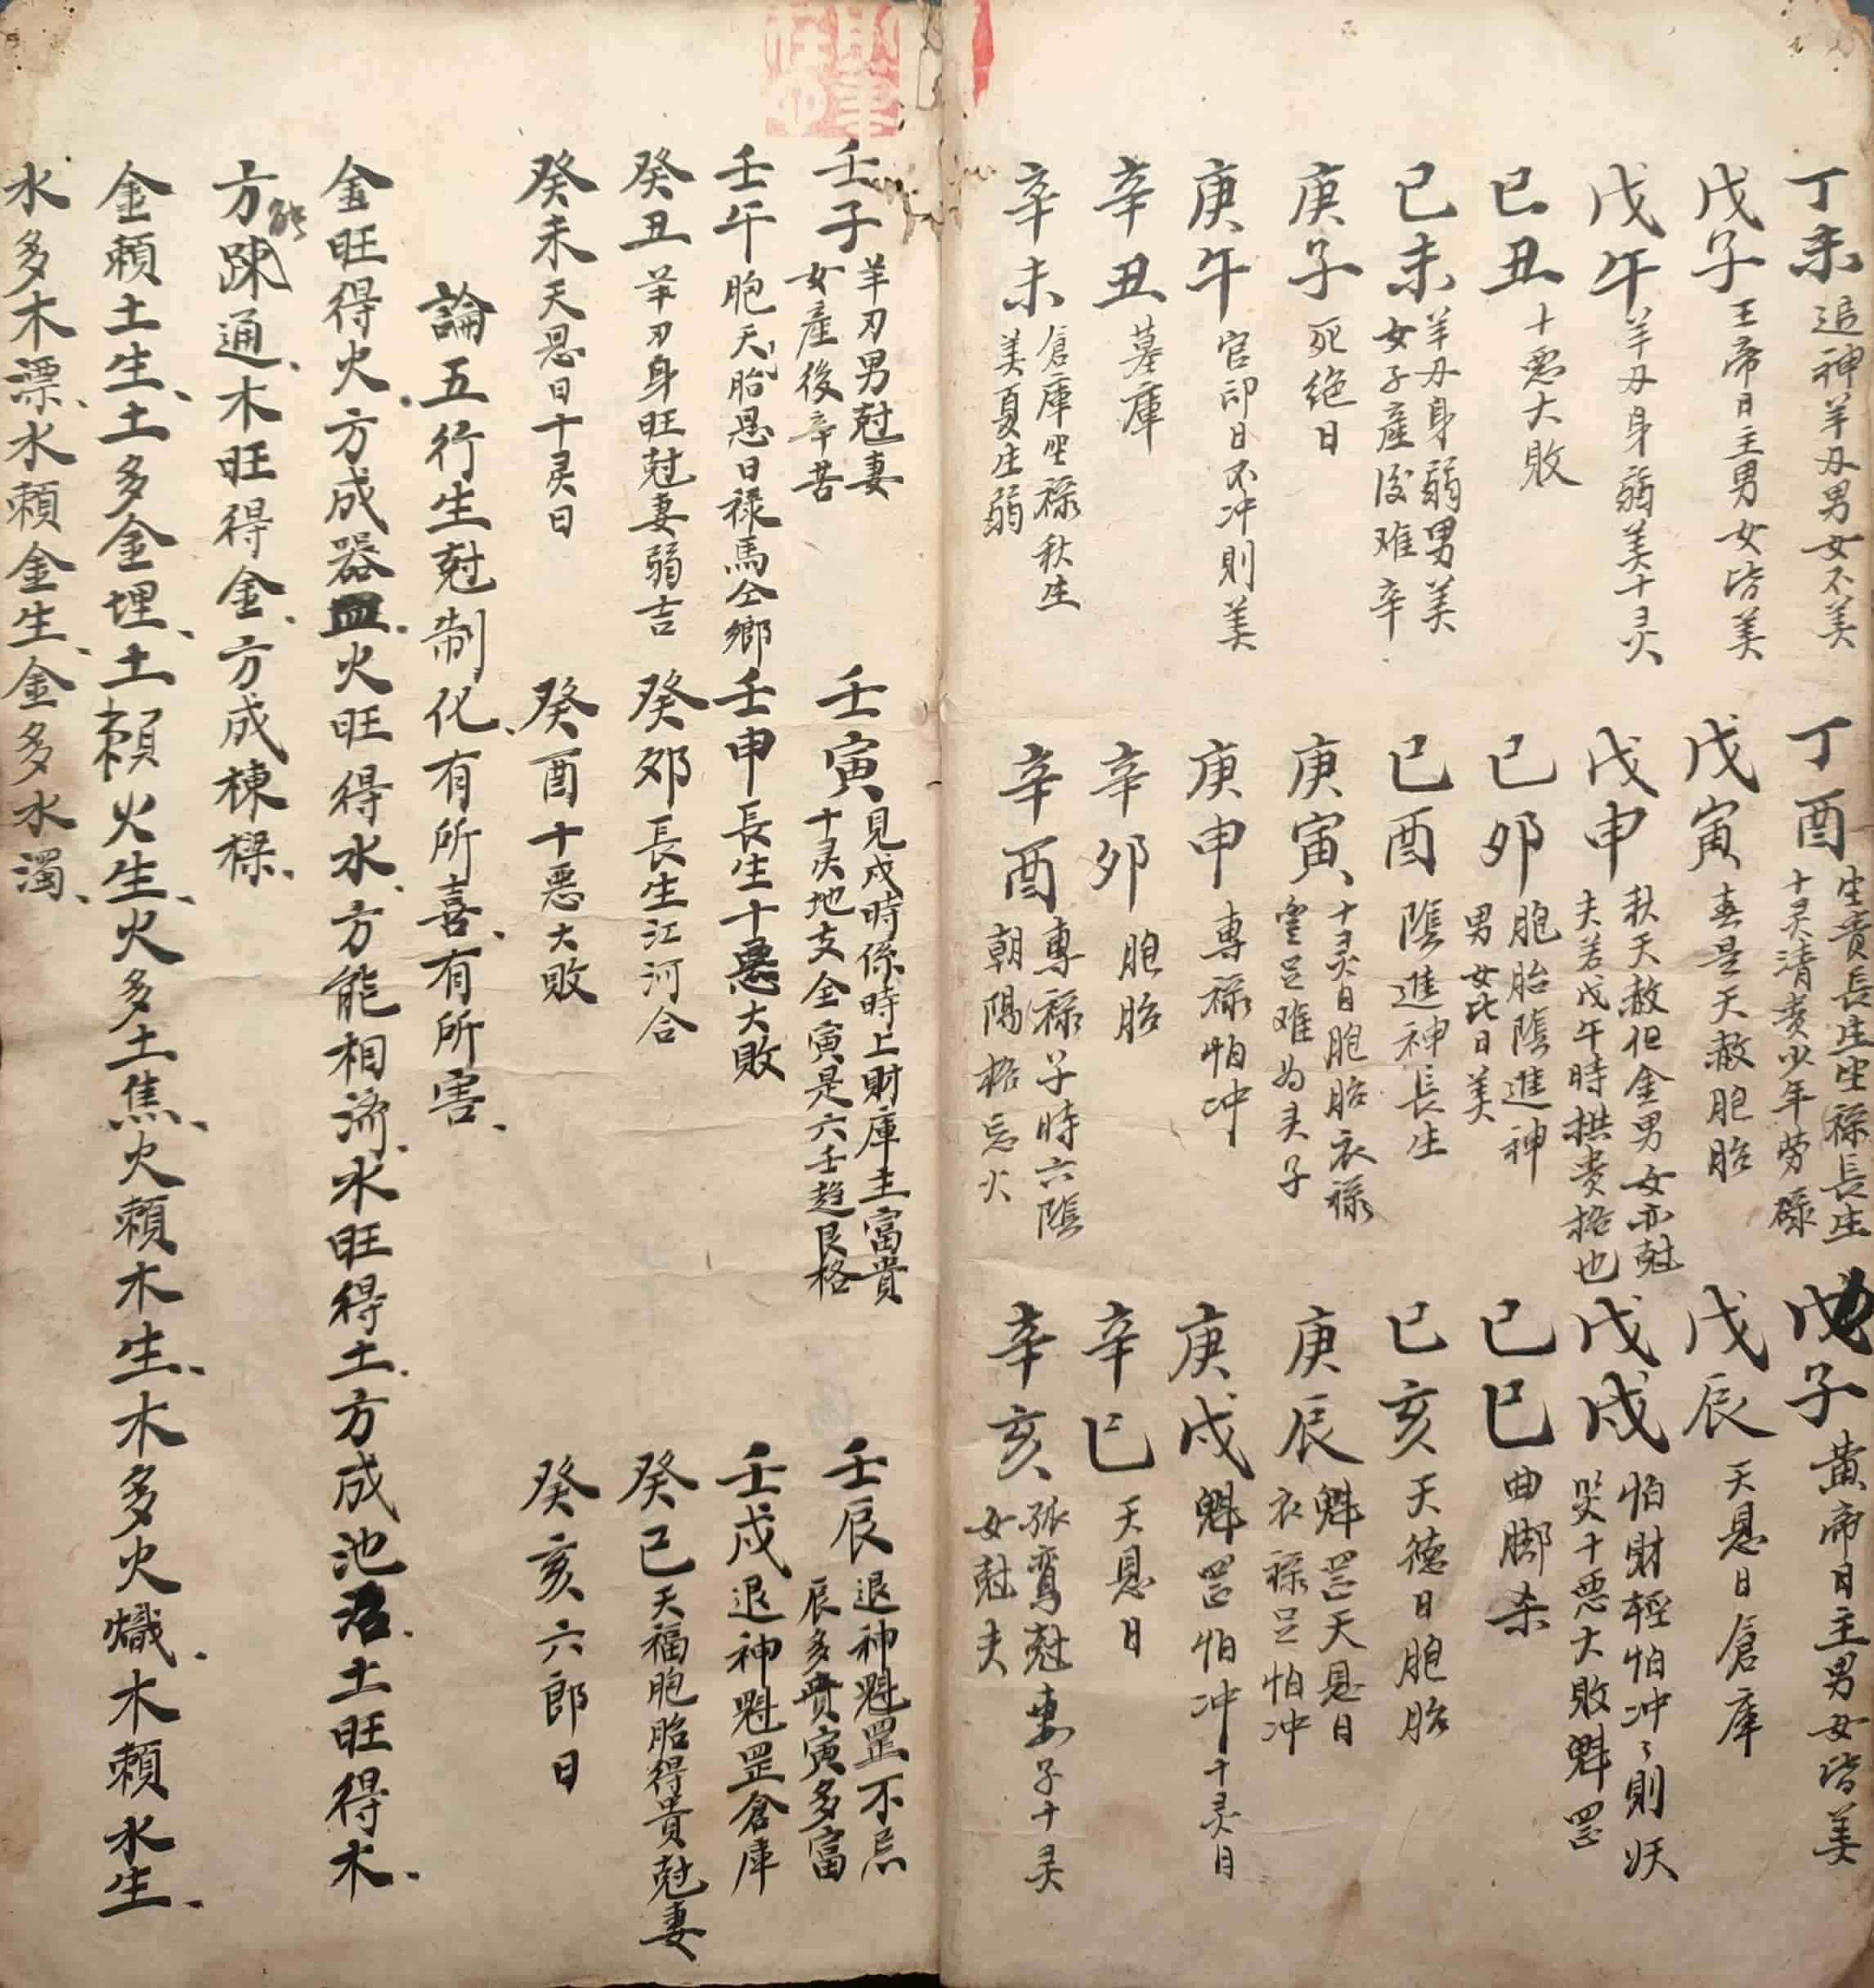 丁未 追神羊刃男女不美
丁酉 生貴長生坐祿長生
十灵清貴少年勞碌
戊子 黄帝日主男女皆美
戊子 王帝日主男女皆美
戊寅 春是天赦胞胎
戊辰 天恩日倉庫
戊午 羊刃身弱美十灵
戊申 秋天赦但金男女亦尅
夫若戊午時拱貴格也
戊戌 怕財輕怕冲々則妖
哭十惡大敗魁罡
已丑 十惡大敗
已卯 胞胎陰進神
男女此日美
已巳 曲脚杀
已未 羊刃身弱男美
女子産後难辛
已酉 陰進神長生
已亥 天德日胞胎
庚子 死绝日
庚寅 十灵日胞胎衣祿
豐足难为夫子
庚辰 魁罡天恩日
衣祿足怕冲
庚午 官印日不冲則美
庚申 專祿怕冲
庚戌 魁罡怕冲十灵日
辛丑 墓庫
辛卯 胞胎
辛巳 天恩日
辛未 倉庫坐祿秋生
美夏生弱
辛酉 專祿子時六陰
朝陽格忘火
辛亥 孤鸾尅妻子十灵
女尅夫
壬子 羊刃男尅妻
女産後辛苦
壬寅 見戌時係時上財庫主富貴
十灵地支全寅是六壬趋艮格
壬辰 退神魁罡不忌
辰多貴寅多富
壬午 胞天胎恩日禄馬仝鄉
壬申 長生十惡大敗
壬戌 退神魁罡倉庫
癸丑 羊刃身旺尅妻弱吉
癸卯 長生江河合
癸巳 天福胞胎得貴尅妻
癸未 天恩日十灵日
癸酉 十惡大敗
癸亥 六郎日
論五行生尅制化、有所喜、有所害、
金旺得火、方成器皿、火旺得水、方能相济、水旺得土、方成池沼、土旺得木、
方能疎通、木旺得金、方成棟樑、
金賴土生、土多金埋、土賴火生、火多土焦、火賴木生、木多火熾、木賴水生、
水多木漂、水賴金生、金多水濁、